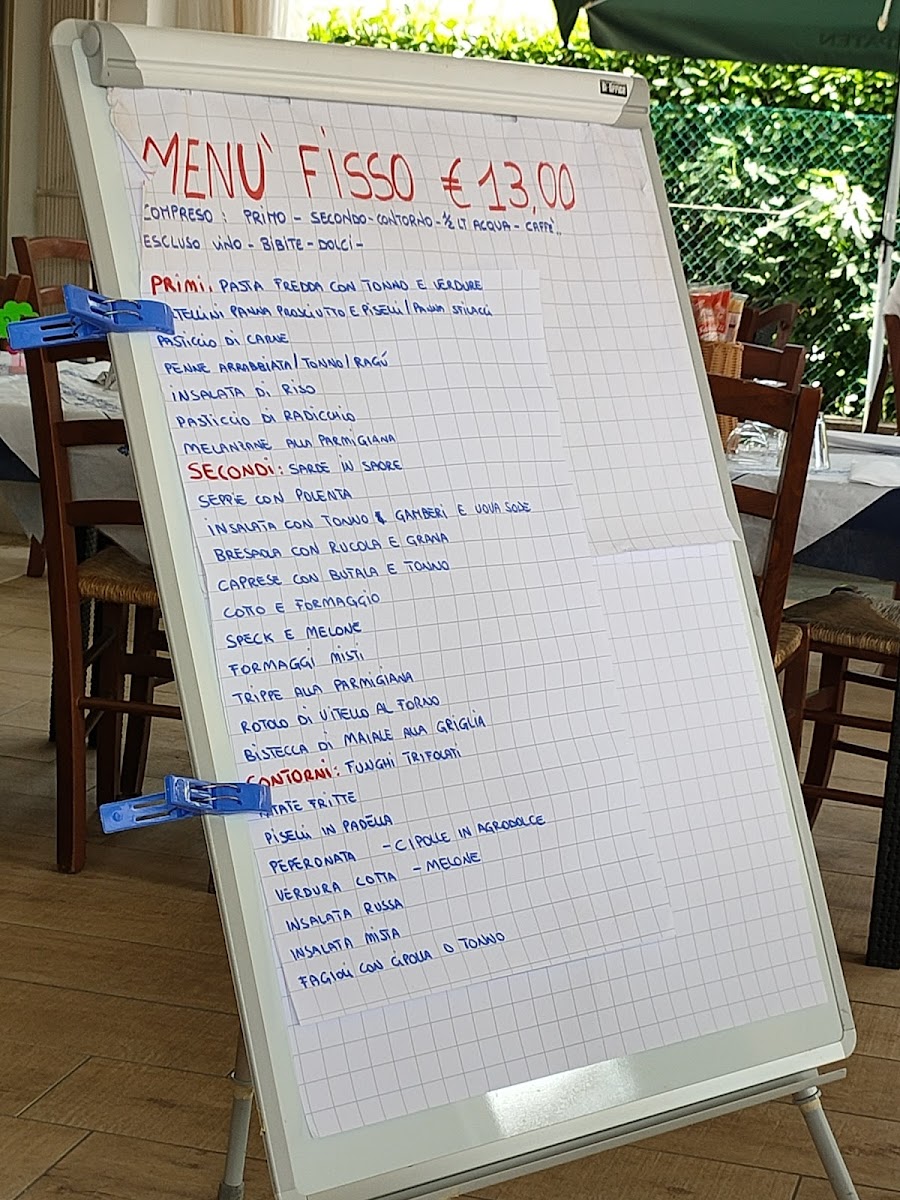 Bi-OFFICE
MENU' FISSO € 13,00
COMPRESO: PRIMO - SECONDO - CONTORNO - ½ LT ACQUA - CAFFÈ..
ESCLUSO VINO - BIBITE - DOLCI -
PRIMI. PASTA FREDDA CON TONNO E VERDURE
TELLINI PANNA PROSCIUTTO E PISELLI / PANNA
PASTICCIO DI CARNE
PENNE ARRABBIATA / TONNO / RAGÚ
INSALATA DI RISO
PASTICCIO DI RADICCHIO
MELANZANE ALLA PARMIGIANA
SECONDI: SARDE IN SAORE
SEPPIE CON POLENTA
INSALATA CON TONNO GAMBERI E UOVA SODE
BRESAOLA CON RUCOLA E GRANA
CAPRESE CON BUFALA E TONNO
COTTO E FORMAGGIO
SPECK E MELONE
FORMAGGI MISTI
TRIPPE ALLA PARMIGIANA
ROTOLO DI VITELLO AL FORNO
BISTECCA DI MAIALE ALLA GRIGLIA
CONTORNI: FUNGHI TRIFOLATI
PATATE FRITTE
PISELLI IN PADELLA
PEPERONATA - CIPOLLE IN AGRODOLCE
VERDURA COTTA - MELONE
INSALATA RUSSA
INSALATA MISTA
FAGIOLI CON CIPOLLA O TONNO